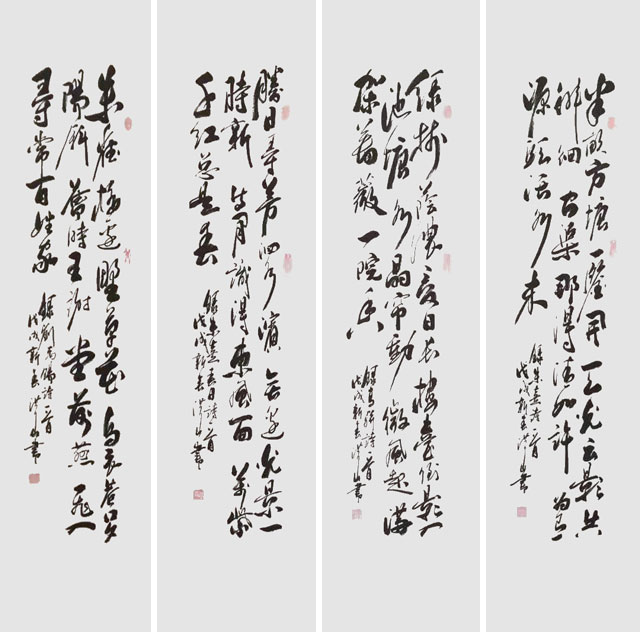 半畝方塘一鑒開天光雲影共
徘徊问渠那得清如許為有
源頭活水来
錄朱熹詩一首
戊戌新春洪山書
绿樹陰濃夏日长樓臺倒影入
池塘水晶帘動微風起满
架薔薇一院香
錄高駢詩一首
戊戌新春洪山書
勝日寻芳泗水濱無边光景一
時新等閒識得東風面萬紫
千红总是春
錄朱熹春日詩一首
戊戌新春洪山書
朱雀橋边野草花烏衣巷口夕
陽斜舊時王謝堂前燕飛入
尋常百姓家
錄劉禹錫詩一首
戊戌新春洪山書